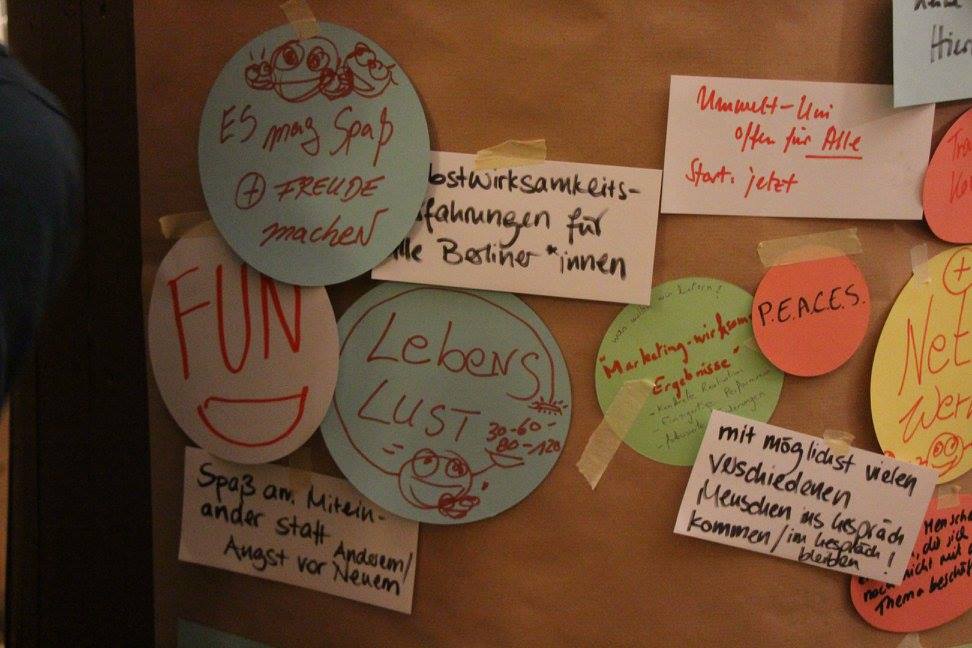 ES mag Spaß
⊕ FREUDE
machen
bstwirksamkeits-
fahrungen für
lle Berliner*innen
Umwelt-Uni
offen für Alle
Start: jetzt
Hier
FUN
Lebens
LUST
30-60-
80-120
was wollen wir liefern?
"Marketing-wirksam
Ergebnisse"
- Konkrete
P.E.A.C.E.S.
⊕
Net
Wer
Spaß am Mitein-
ander statt
Angst vor Anderem/
Neuem
mit möglichst vielen
verschiedenen
Menschen ins Gespräch
kommen/im Gespräch
bleiben!
Mensche
nicht mit
Thema beschäf